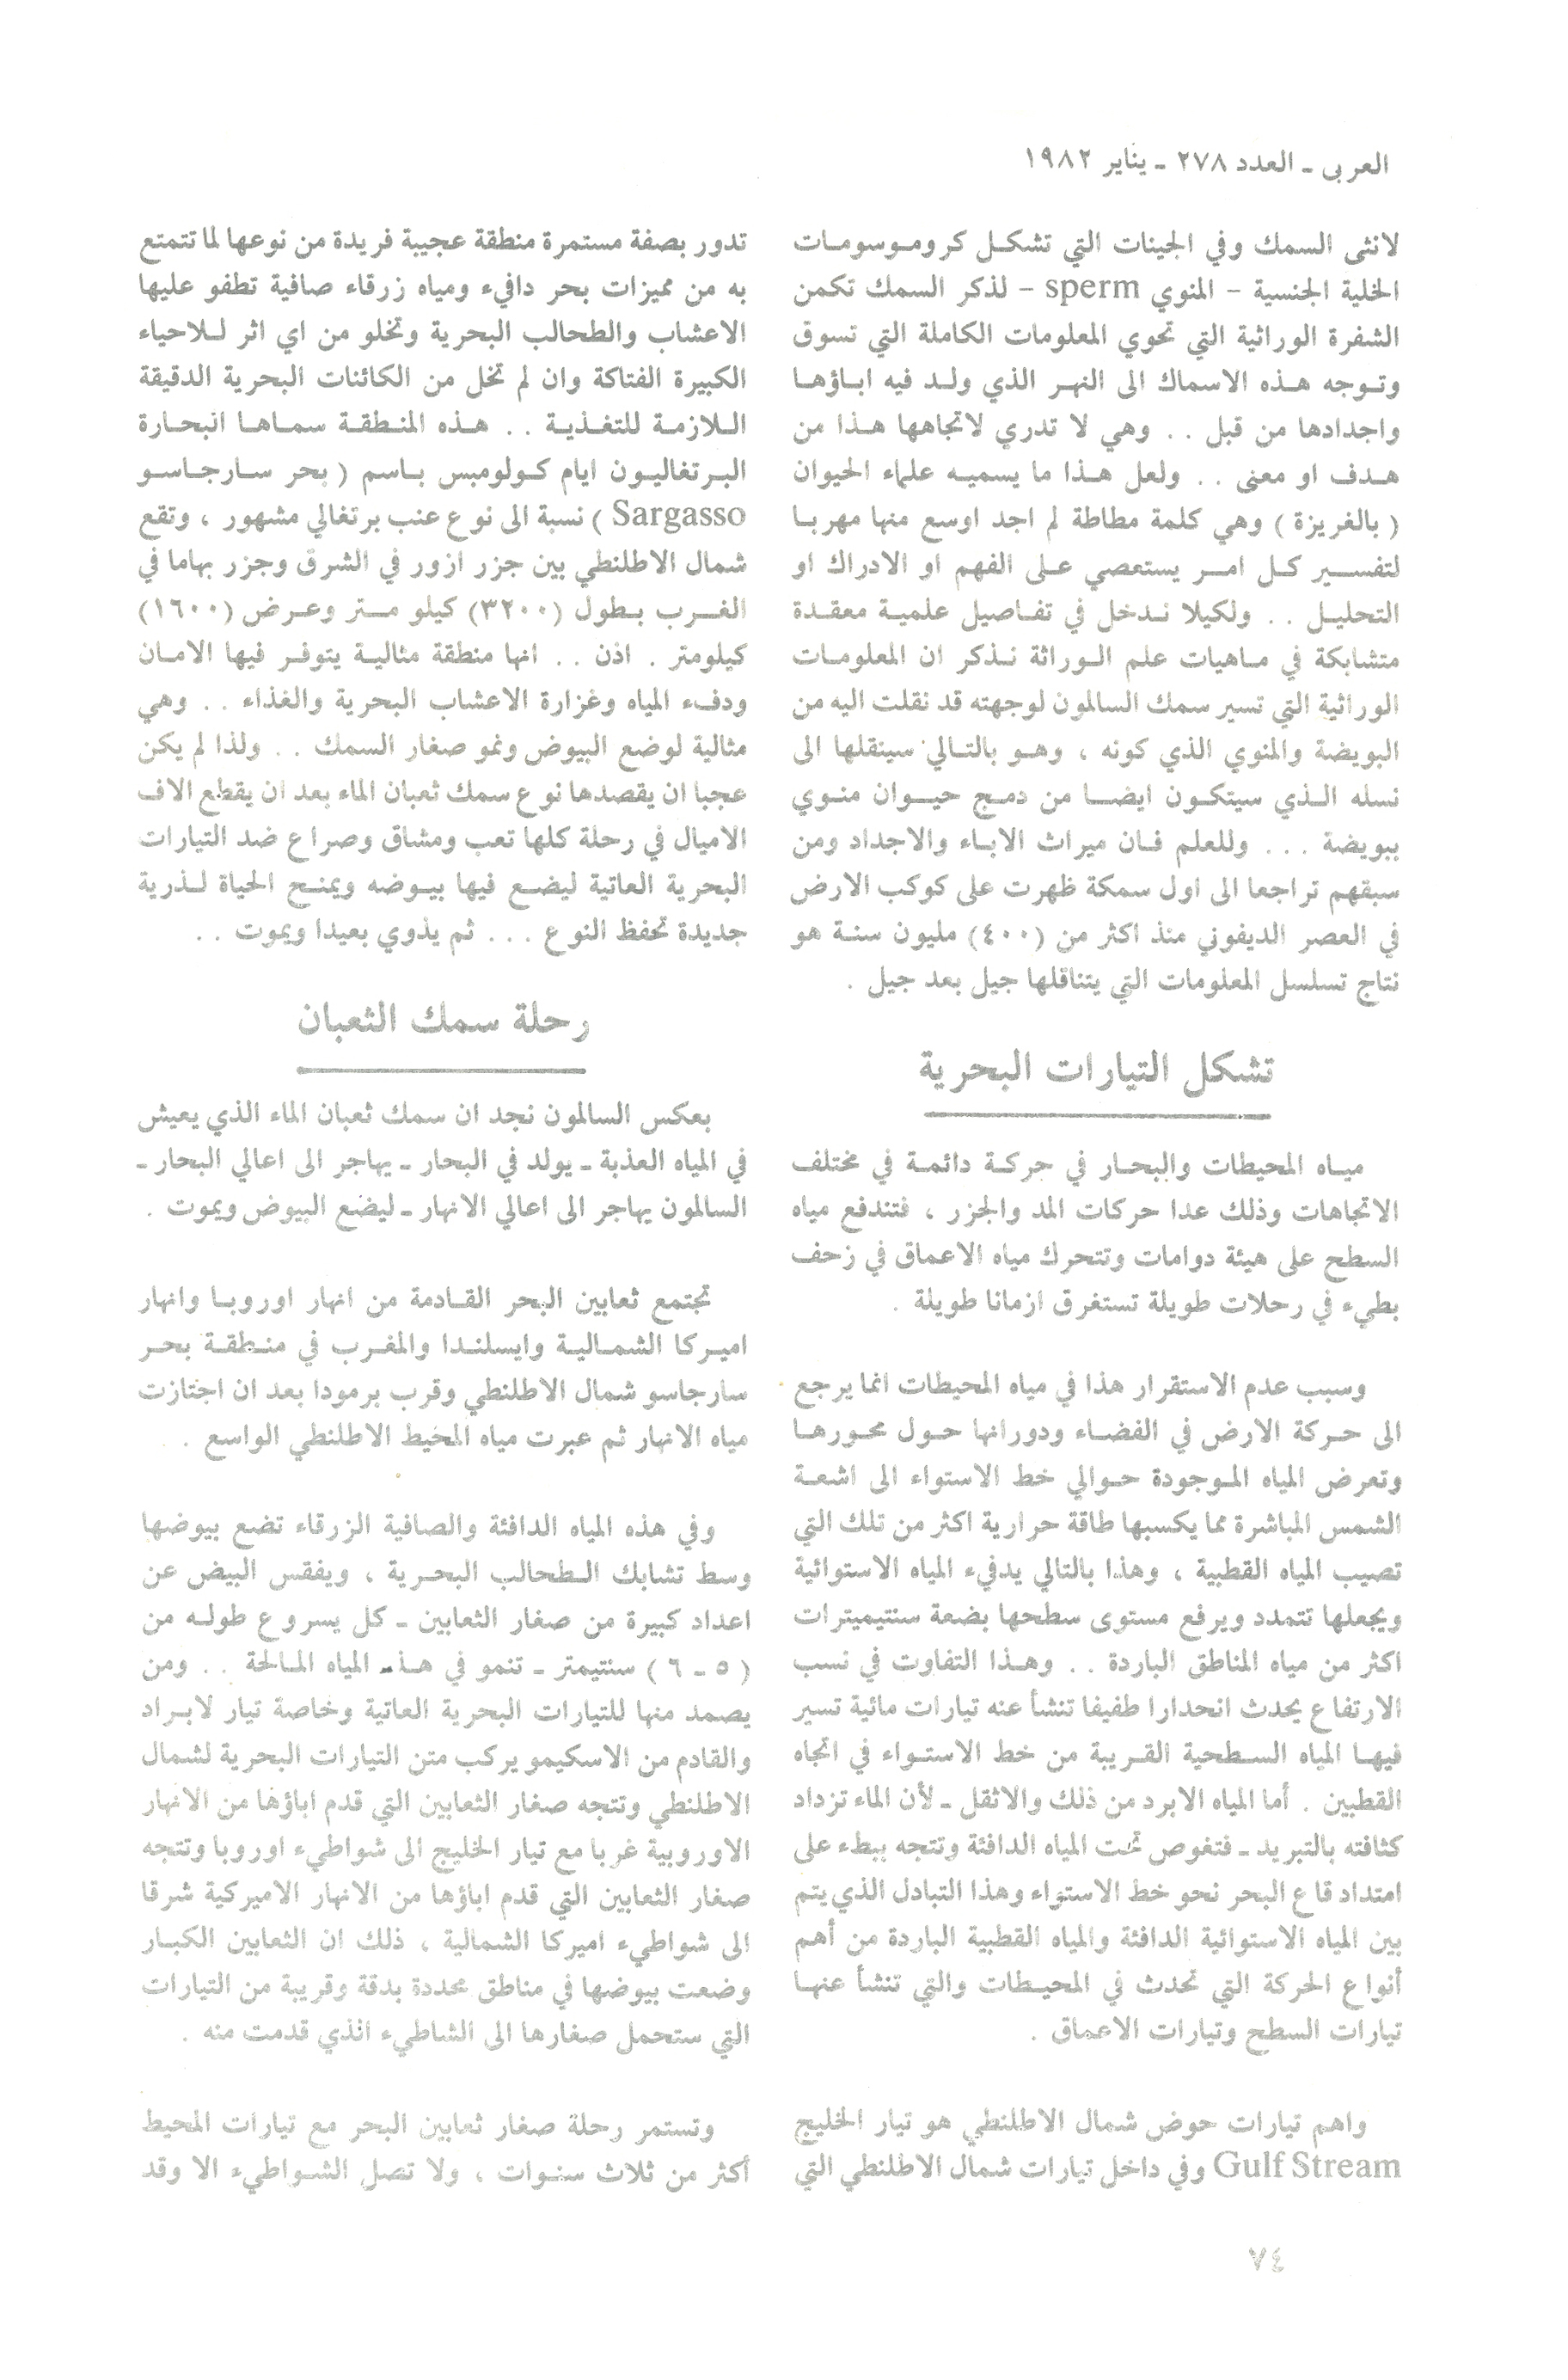 العربي ـ العدد ٢٧٨ ـ يناير ١٩٨٢
لانثى السمك وفي الجينات التي تشكل كروموسومات
الخلية الجنسية - المنوي sperm - لذكر السمك تكمن
الشفرة الوراثية التي تحوي المعلومات الكاملة التي تسوق
وتوجه هذه الاسماك الى النهر الذي ولد فيه اباؤها
واجدادها من قبل . . وهي لا تدري لاتجاهها هذا من
هدف او معنى . . ولعل هذا ما يسميه علماء الحيوان
( بالغريزة ) وهي كلمة مطاطة لم اجد اوسع منها مهربا
لتفسير كل امر يستعصي على الفهم او الادراك او
التحليل . . ولكيلا ندخل في تفاصيل علمية معقدة
متشابكة في ماهيات علم الوراثة نذكر ان المعلومات
الوراثية التي تسير سمك السالمون لوجهته قد نقلت اليه من
البويضة والمنوي الذي كونه ، وهو بالتالي سينقلها الى
نسله الذي سيتكون ايضا من دمج حيوان منوي
ببويضة . . . وللعلم فان ميراث الاباء والاجداد ومن
سبقهم تراجعا الى اول سمكة ظهرت على كوكب الارض
في العصر الديفوني منذ اكثر من (٤٠٠) مليون سنة هو
نتاج تسلسل المعلومات التي يتناقلها جيل بعد جيل .
تشكل التيارات البحرية
مياه المحيطات والبحار في حركة دائمة في مختلف
الاتجاهات وذلك عدا حركات المد والجزر ، فتندفع مياه
السطح على هيئة دوامات وتتحرك مياه الاعماق في زحف
بطيء في رحلات طويلة تستغرق ازمانا طويلة .
وسبب عدم الاستقرار هذا في مياه المحيطات انما يرجع
الى حركة الارض في الفضاء ودورانها حول محورها
وتعرض المياه الموجودة حوالي خط الاستواء الى اشعة
الشمس المباشرة مما يكسبها طاقة حرارية اكثر من تلك التي
تصيب المياه القطبية ، وهذا بالتالي يدفيء المياه الاستوائية
ويجعلها تتمدد ويرفع مستوى سطحها بضعة سنتيميترات
اكثر من مياه المناطق الباردة . . وهذا التفاوت في نسب
الارتفاع يحدث انحدارا طفيفا تنشأ عنه تيارات مائية تسير
فيها المياه السطحية القريبة من خط الاستواء في اتجاه
القطبين . أما المياه الابرد من ذلك والاثقل ـ لأن الماء تزداد
كثافته بالتبريد ـ فتغوص تحت المياه الدافئة وتتجه ببطء على
امتداد قاع البحر نحو خط الاستواء وهذا التبادل الذي يتم
بين المياه الاستوائية الدافئة والمياه القطبية الباردة من أهم
أنواع الحركة التي تحدث في المحيطات والتي تنشأ عنها
تيارات السطح وتيارات الاعماق .
واهم تيارات حوض شمال الاطلنطي هو تيار الخليج
Gulf Stream وفي داخل تيارات شمال الاطلنطي التي
تدور بصفة مستمرة منطقة عجيبة فريدة من نوعها لما تتمتع
به من مميزات بحر دافيء ومياه زرقاء صافية تطفو عليها
الاعشاب والطحالب البحرية وتخلو من اي اثر للاحياء
الكبيرة الفتاكة وان لم تخل من الكائنات البحرية الدقيقة
اللازمة للتغذية . . هذه المنطقة سماها البحارة
البرتغاليون ايام كولومبس باسم ( بحر سارجاسو
Sargasso ) نسبة الى نوع عنب برتغالي مشهور ، وتقع
شمال الاطلنطي بين جزر ازور في الشرق وجزر بهاما في
الغرب بطول (٣٢٠٠) كيلو متر وعرض (١٦٠٠)
كيلومتر . اذن . . انها منطقة مثالية يتوفر فيها الامان
ودفء المياه وغزارة الاعشاب البحرية والغذاء . . وهي
مثالية لوضع البيوض ونمو صغار السمك . . ولذا لم يكن
عجبا ان يقصدها نوع سمك ثعبان الماء بعد ان يقطع الاف
الاميال في رحلة كلها تعب ومشاق وصراع ضد التيارات
البحرية العاتية ليضع فيها بيوضه ويمنح الحياة لذرية
جديدة تحفظ النوع . . . ثم يذوي بعيدا ويموت . .
رحلة سمك الثعبان
بعكس السالمون نجد ان سمك ثعبان الماء الذي يعيش
في المياه العذبة ـ يولد في البحار ـ يهاجر الى اعالي البحار ـ
السالمون يهاجر الى اعالي الانهار ـ ليضع البيوض ويموت .
تجتمع ثعابين البحر القادمة من انهار اوروبا وانهار
اميركا الشمالية وايسلندا والمغرب في منطقة بحر
سارجاسو شمال الاطلنطي وقرب برمودا بعد ان اجتازت
مياه الانهار ثم عبرت مياه المحيط الاطلنطي الواسع .
وفي هذه المياه الدافئة والصافية الزرقاء تضع بيوضها
وسط تشابك الطحالب البحرية ، ويفقس البيض عن
اعداد كبيرة من صغار الثعابين ـ كل يسروع طوله من
( ٥ ـ ٦ ) سنتيمتر ـ تنمو في هذه المياه المالحة . . ومن
يصمد منها للتيارات البحرية العاتية وخاصة تيار لابراد
والقادم من الاسكيمو يركب متن التيارات البحرية لشمال
الاطلنطي وتتجه صغار الثعابين التي قدم اباؤها من الانهار
الاوروبية غربا مع تيار الخليج الى شواطيء اوروبا وتتجه
صغار الثعابين التي قدم اباؤها من الانهار الاميركية شرقا
الى شواطيء اميركا الشمالية ، ذلك ان الثعابين الكبار
وضعت بيوضها في مناطق محددة بدقة وقريبة من التيارات
التي ستحمل صغارها الى الشاطيء الذي قدمت منه .
وتستمر رحلة صغار ثعابين البحر مع تيارات المحيط
أكثر من ثلاث سنوات ، ولا تصل الشواطيء الا وقد
٧٤